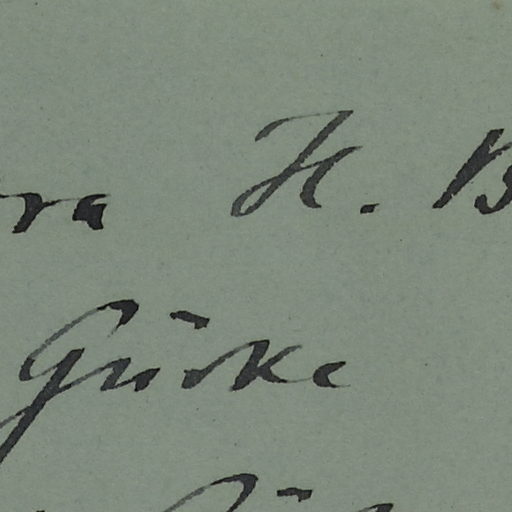 ra H. B
Gürke